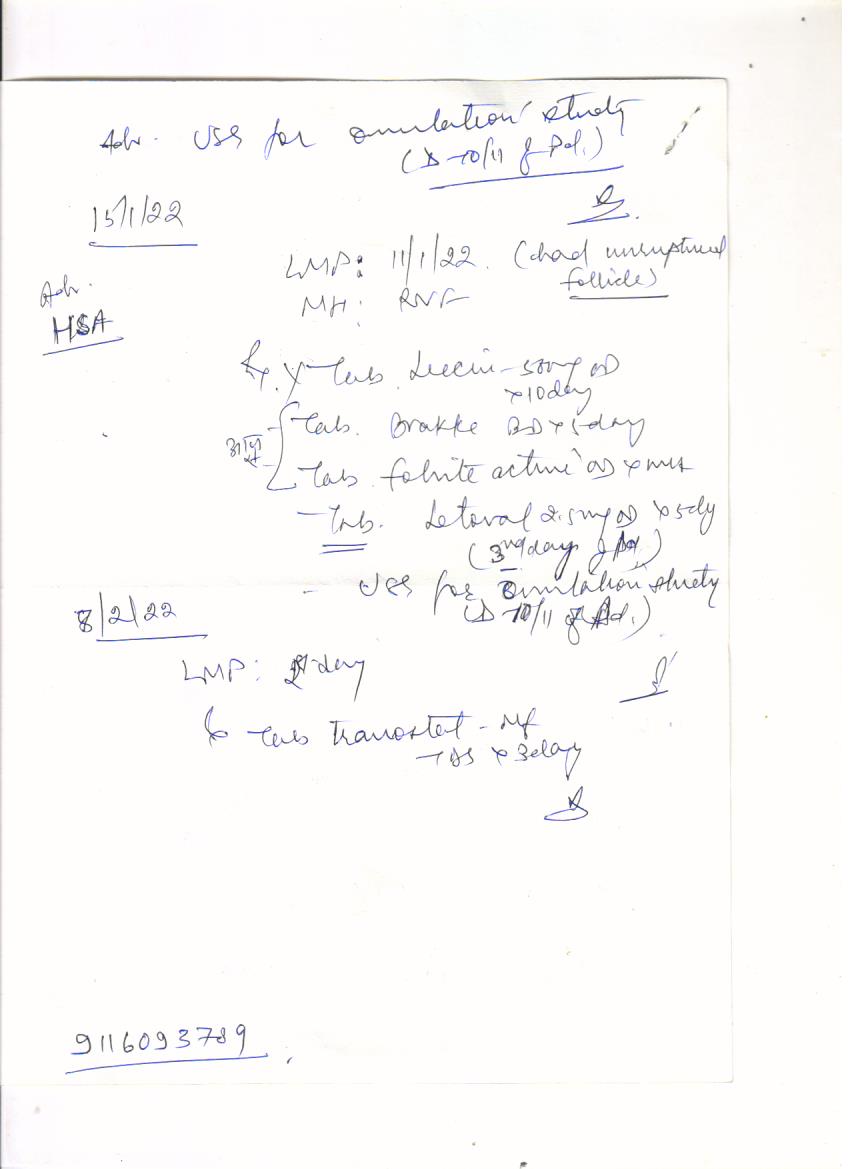 Adv. USS for ovulation study
(D-10/11 of Pd.)
15/1/22
LMP: 11/1/22. (had unruptured
follicle)
Adv.
HSA
MH: RNF
Rx. Tab. 500mg OD
x10day
Tab. BD x 5day
आज से
Tab. folvite active OD x mth
Tab. Letoval 2.5mg OD x 5dy
(3rd day of Pd)
- USS for ovulation study
(D-10/11 of Pd.)
8/2/22
LMP: 1st day
Rx Tab Tranostat-Mf
TDS x 3day
9116093789